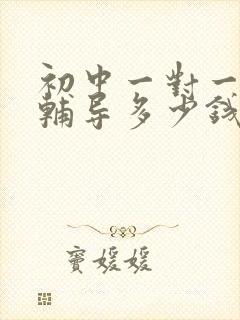 初中一對一
輔导多少钱
窦媛媛